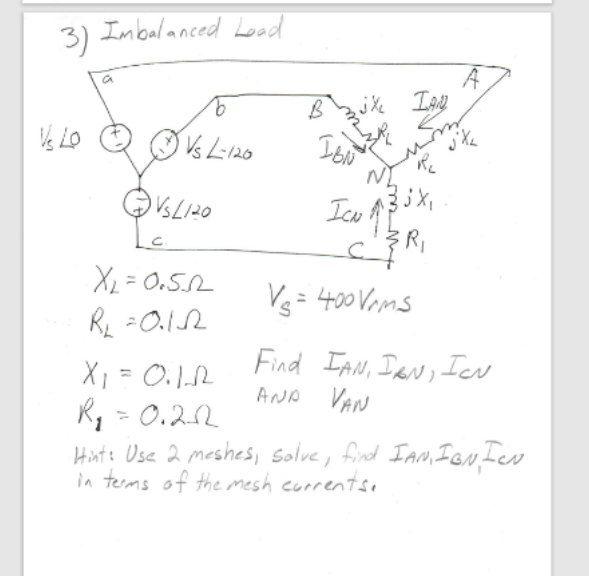 3) Imbalanced Load
a
A
b
B
jXL
IAN
Vs∠0
Vs∠-120
IBN
RL
jXL
RL
N
Vs∠120
ICN
jX1
R1
c
C
XL = 0.5Ω
Vs = 400 Vrms
RL = 0.1Ω
X1 = 0.1Ω
Find IAN, IBN, ICN
R1 = 0.2Ω
AND VAN
Hint: Use 2 meshes, solve, find IAN, IBN, ICN
in terms of the mesh currents.